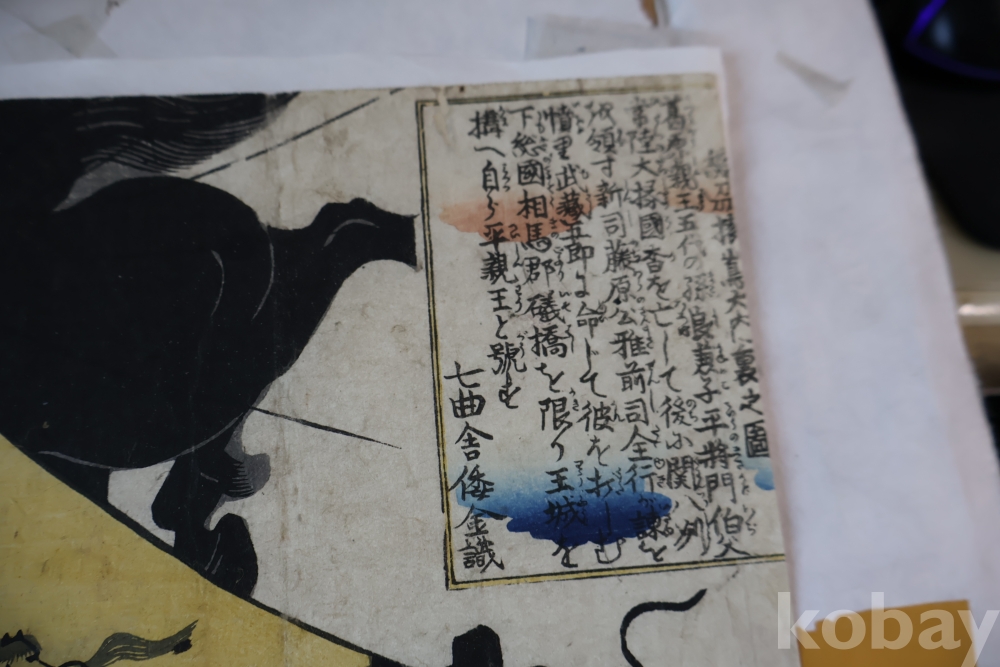 大内裏之圖
葛原親王五代の孫 平将門伯父
常陸大掾國香を亡して後小關八列
領す新司藤原公雅前司全行が謀を
憤里武藏五郎に命じて彼を
下総國相馬郡礒橋を限り王城を
搆へ自ら平親王と號す
七曲舎倭金識
kobay